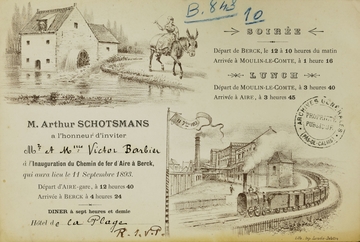 B. 843
10
SOIRÉE
Départ de BERCK, le 12 à 10 heures du matin
Arrivée à MOULIN-LE-COMTE, à 1 heure 16
LUNCH
Départ de MOULIN-LE-COMTE, à 3 heures 40
Arrivée à AIRE, à 3 heures 45
ARCHIVES
PROPRIÉTÉ
PUBLIQUE
PAS-DE-CALAIS
M. Arthur SCHOTSMANS
a l'honneur d'inviter
Mr et Mme Victor Barbier
à l'Inauguration du Chemin de fer d'Aire à Berck,
qui aura lieu le 11 Septembre 1893.
Départ d'AIRE-gare, à 12 heures 40
Arrivée à BERCK à 4 heures 24
DINER à sept heures et demie
Hôtel de la Plage
R. S. V. P.